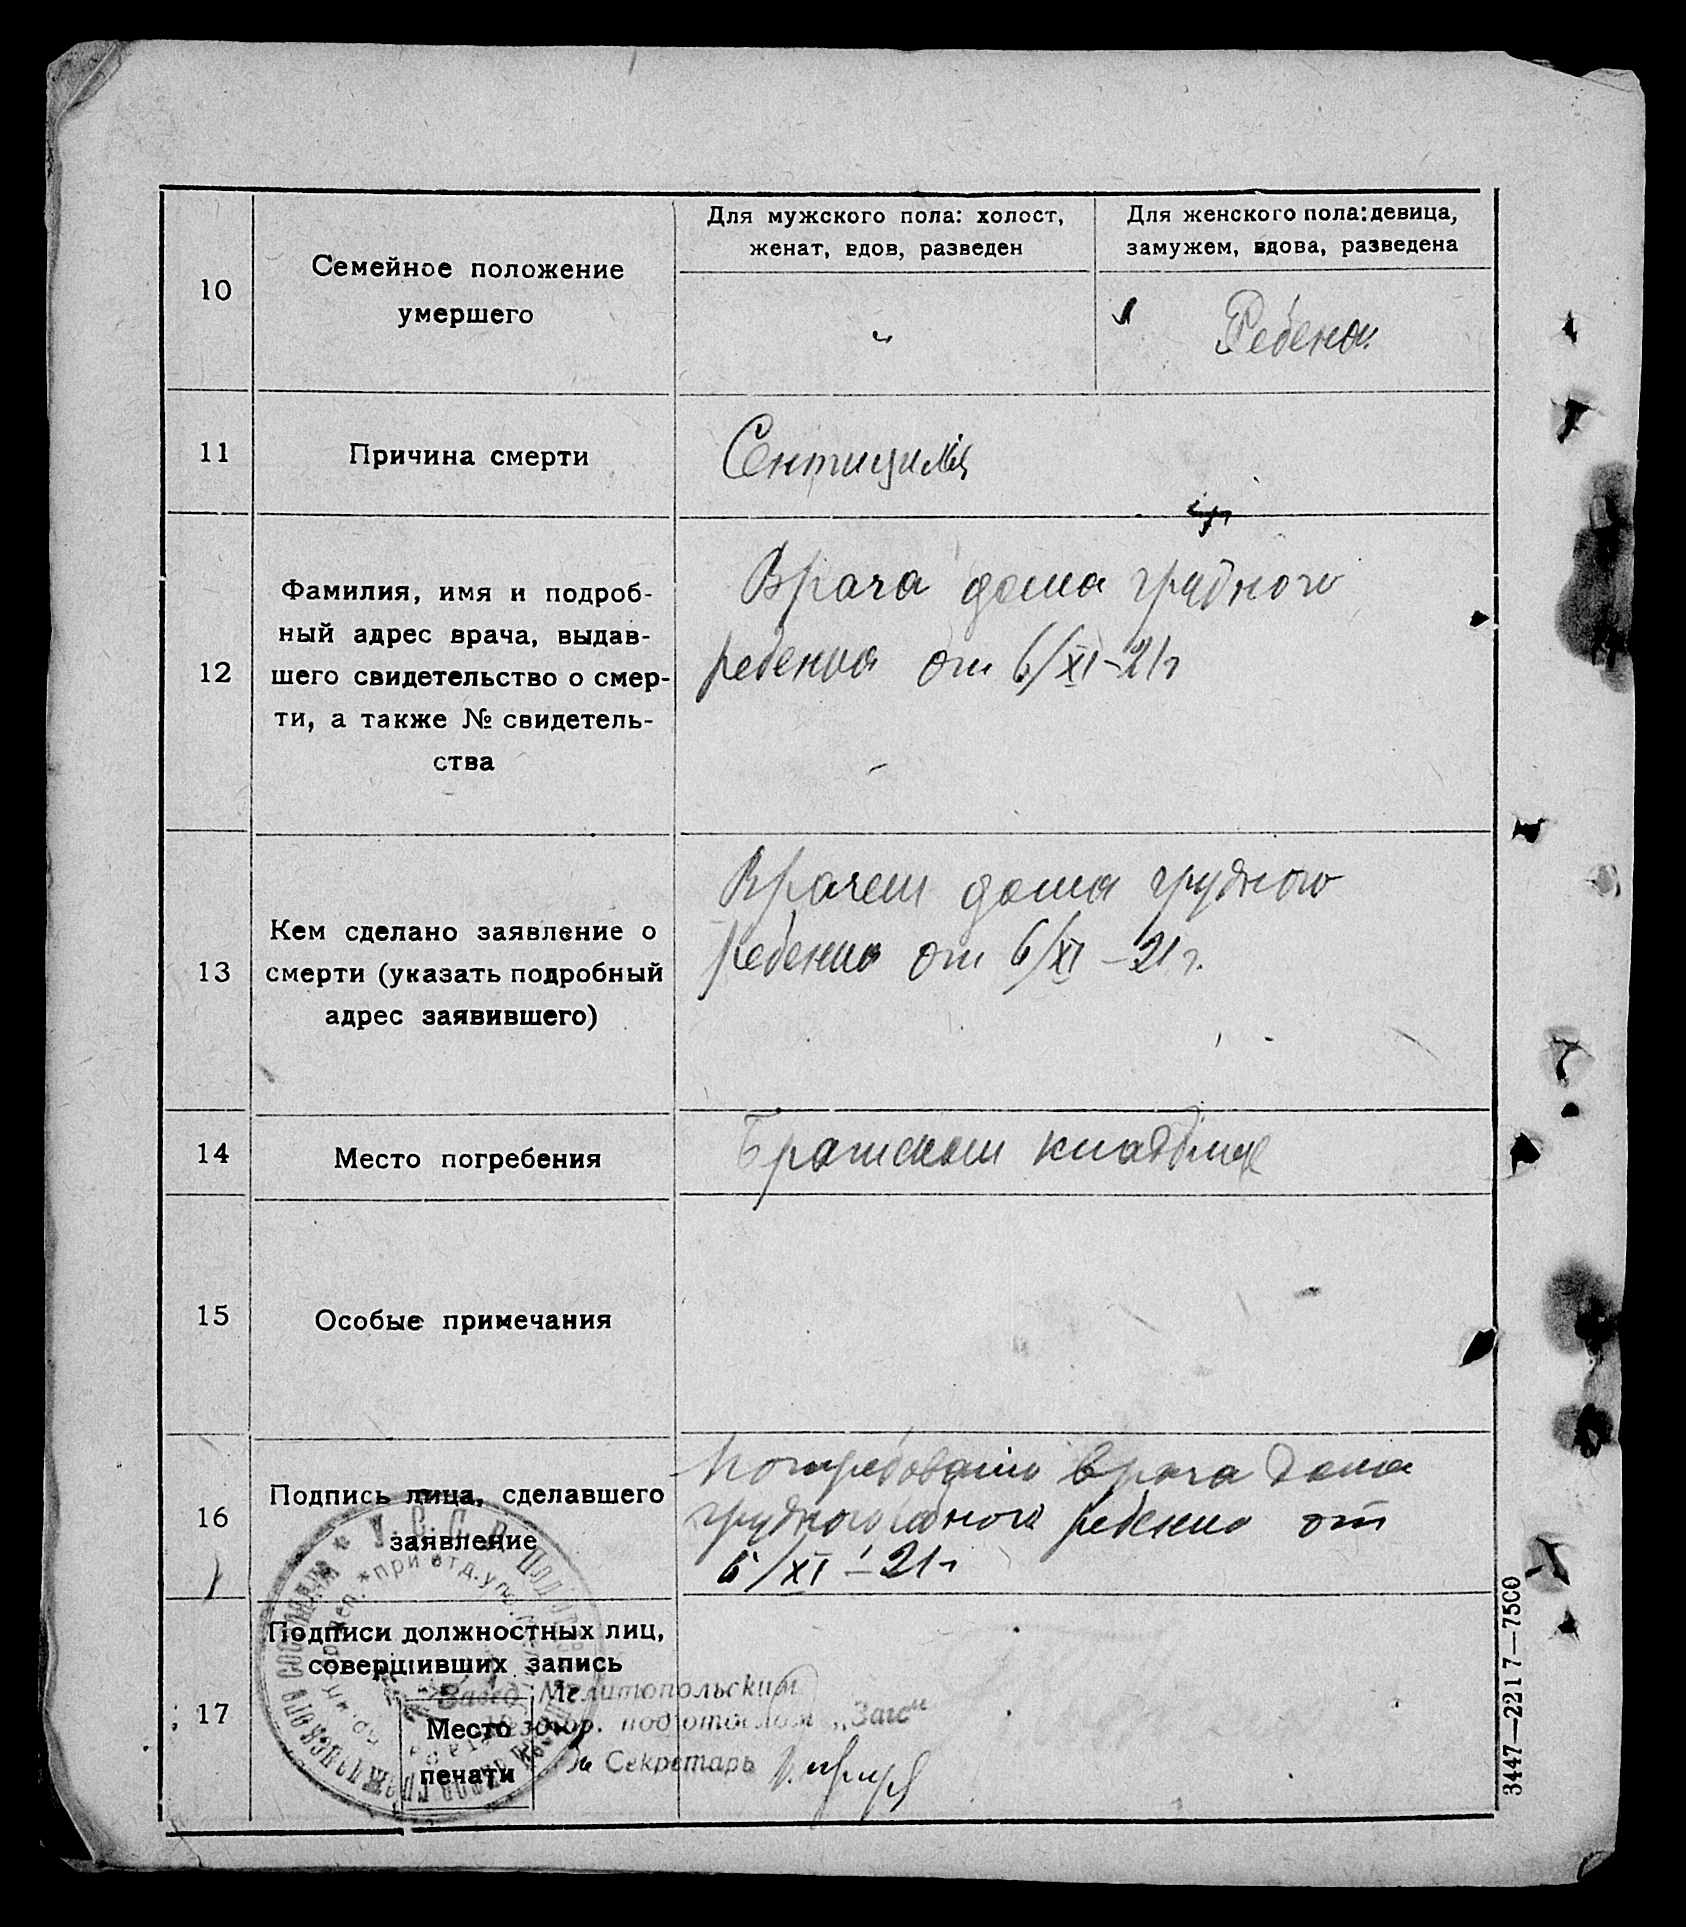 Для мужского пола: холост,
женат, вдов, разведен
Для женского пола: девица,
замужем, вдова, разведена
10
Семейное положение
умершего
"
Ребенок
11
Причина смерти
12
Фамилия, имя и подроб-
ный адрес врача, выдав-
шего свидетельство о смер-
ти, а также № свидетель-
ства
Врача дома грудного
ребенка от 6/XI-21г
13
Кем сделано заявление о
смерти (указать подробный
адрес заявившего)
Врачем дома грудного
ребенка от 6/XI-21г.
14
Место погребения
Братском кладбище
15
Особые примечания
16
Подпись лица, сделавшего
заявление
врача дома
ребенка от
6/XI-21г
17
Подписи должностных лиц,
совершивших запись
Место
печати
У.С.С.Р.
при отд. упр.
Завед. Мелитопольским
гор. подотделом „Загс"
Секретарь
3447—2217—7500